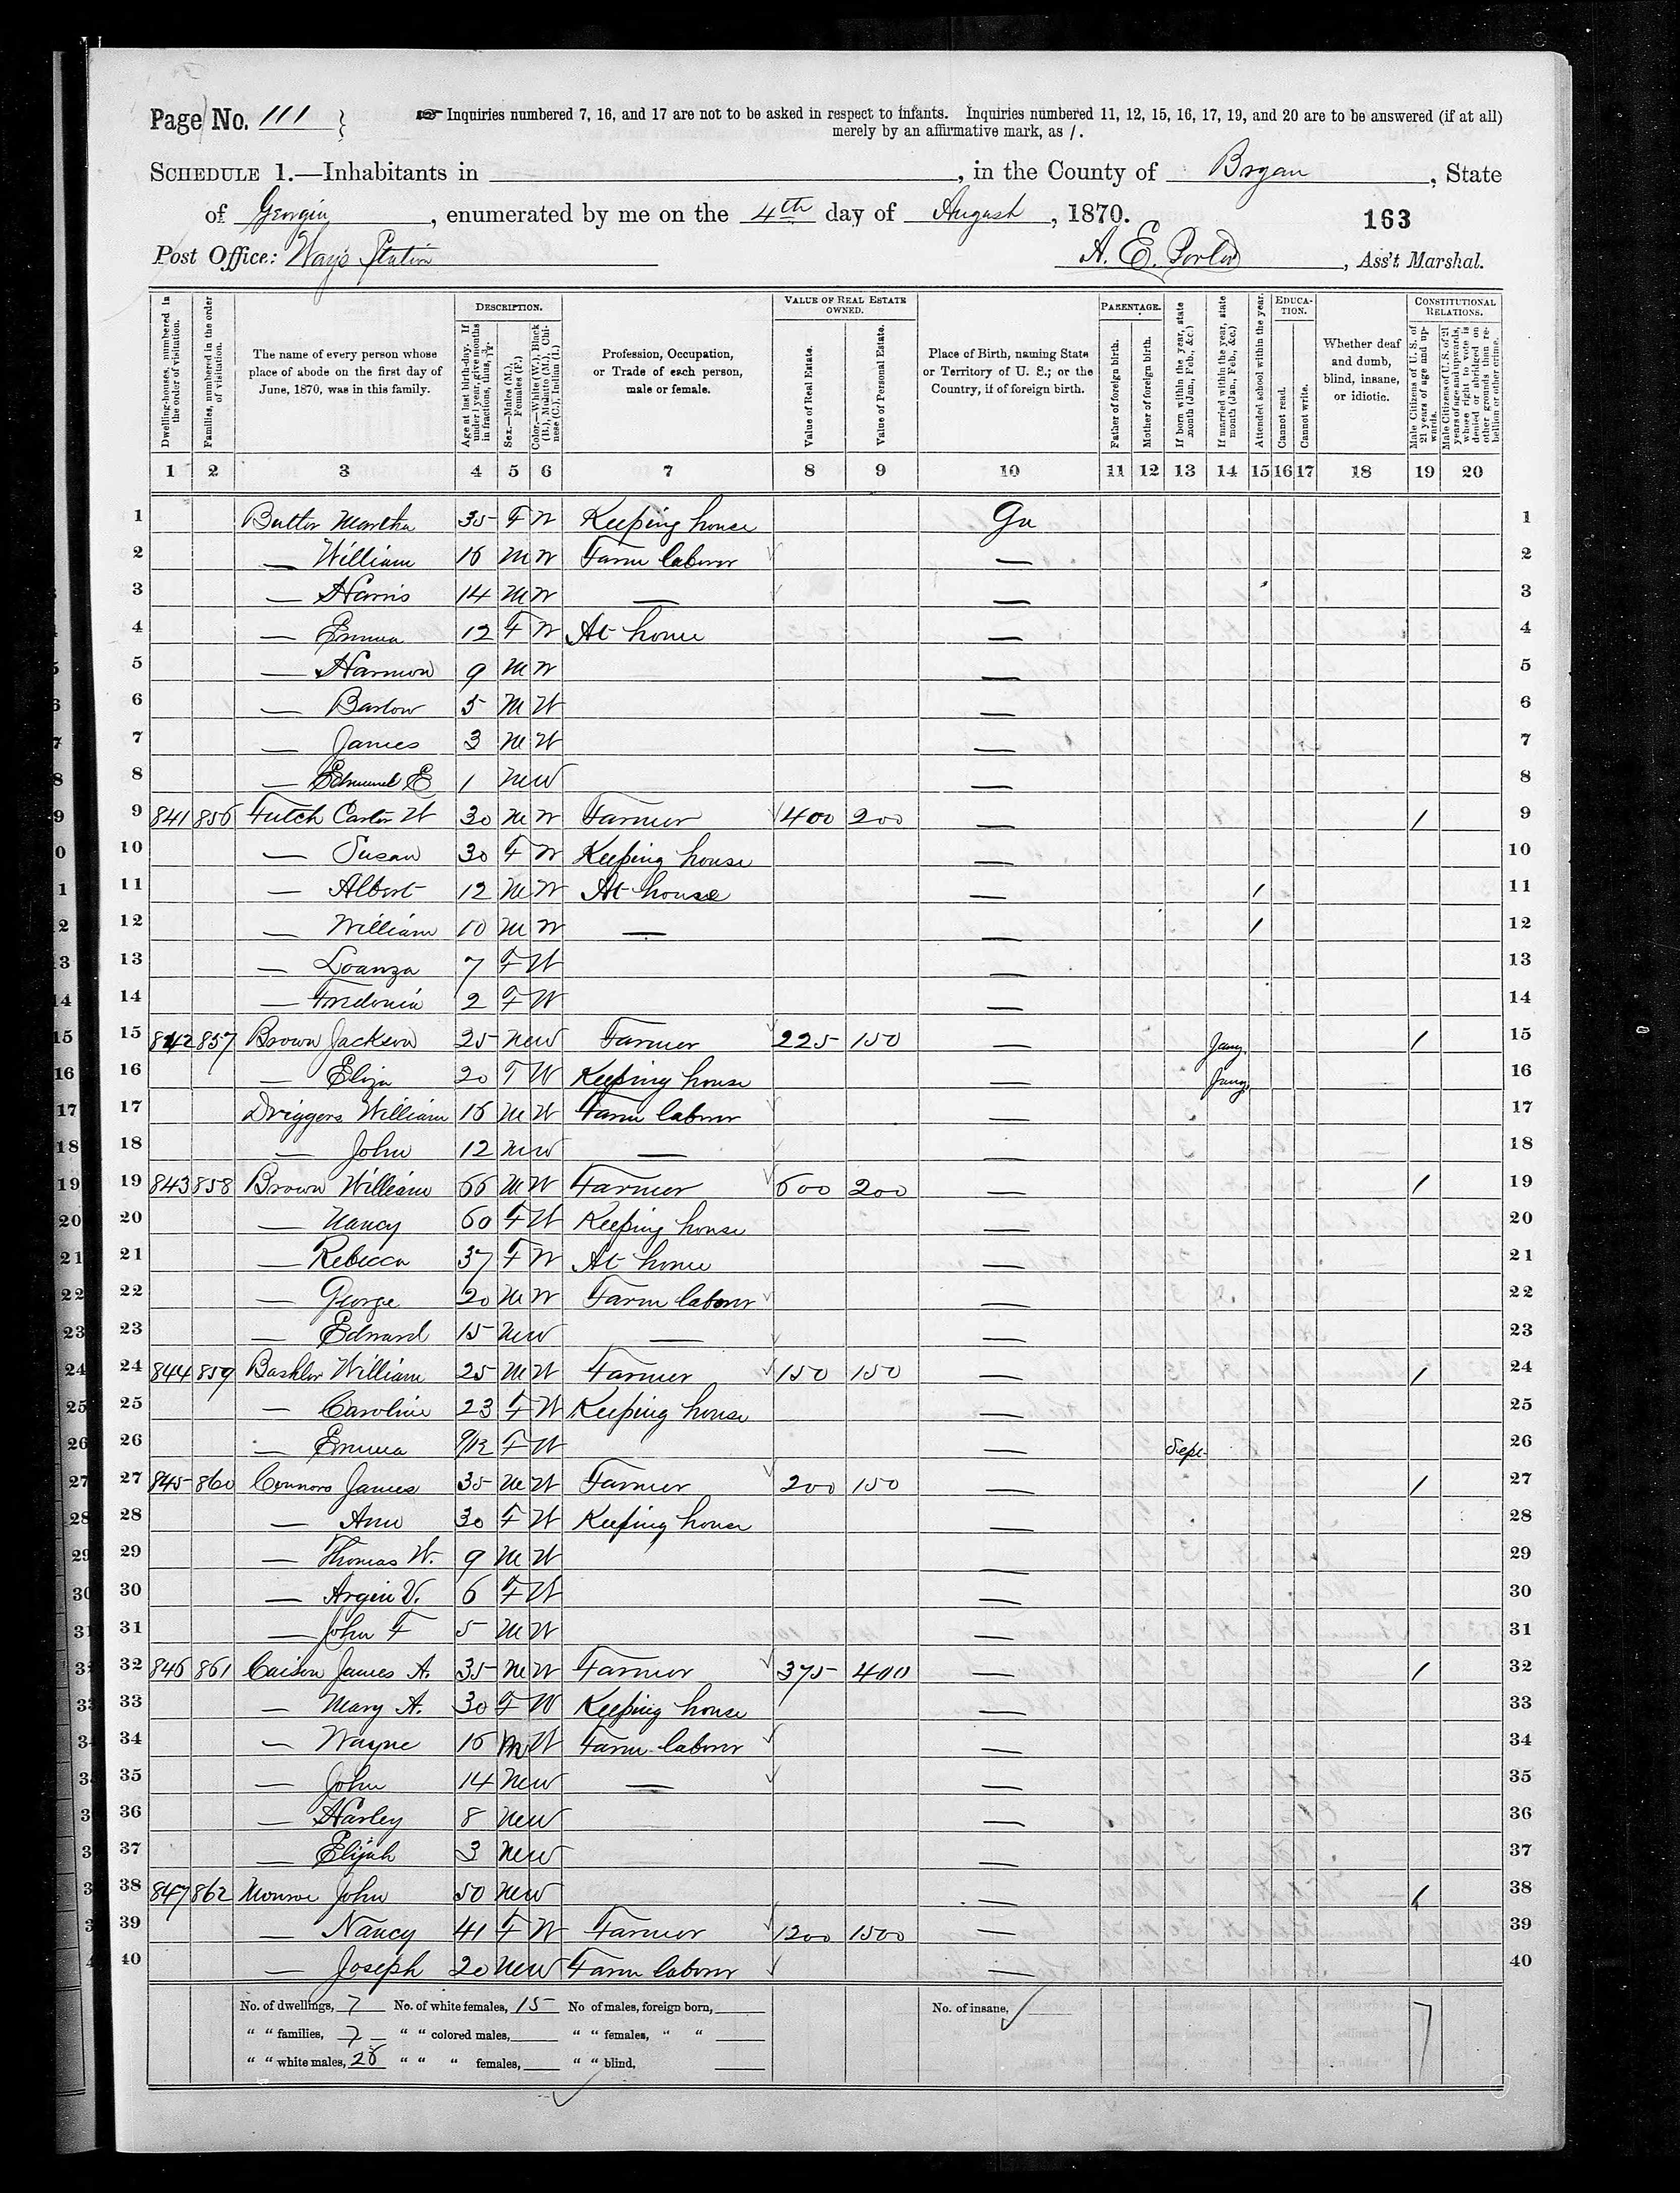 Page No. 111
Inquiries numbered 7, 16, and 17 are not to be asked in respect to infants. Inquiries numbered 11, 12, 15, 16, 17, 19, and 20 are to be answered (if at all)
merely by an affirmative mark, as /.
SCHEDULE 1.—Inhabitants in , in the County of Bryan, State
of Georgia, enumerated by me on the 4th day of August, 1870.
163
Post Office: Ways Station
A. E. , Ass't Marshal.
Dwelling-houses, numbered in the order of visitation.
Families, numbered in the order of visitation.
The name of every person whose place of abode on the first day of June, 1870, was in this family.
DESCRIPTION.
Age at last birth-day. If under 1 year, give months in fractions, thus, 3/12.
Sex.—Males (M.), Females (F.)
Color.—White (W.), Black (B.), Mulatto (M.), Chinese (C.), Indian (I.)
Profession, Occupation, or Trade of each person, male or female.
VALUE OF REAL ESTATE OWNED.
Value of Real Estate.
Value of Personal Estate.
Place of Birth, naming State or Territory of U. S.; or the Country, if of foreign birth.
PARENTAGE.
Father of foreign birth.
Mother of foreign birth.
If born within the year, state month (Jan., Feb., &c.)
If married within the year, state month (Jan., Feb., &c.)
Attended school within the year.
EDUCATION.
Cannot read.
Cannot write.
Whether deaf and dumb, blind, insane, or idiotic.
CONSTITUTIONAL RELATIONS.
Male Citizens of U. S. of 21 years of age and upwards.
Male Citizens of U. S. of 21 years of age and upwards, whose right to vote is denied or abridged on other grounds than rebellion or other crime.
1 2 3 4 5 6 7 8 9 10 11 12 13 14 15 16 17 18 19 20
1 Butler Martha 35 F W Keeping house Ga 1
2 — William 16 M W Farm laborer — 2
3 — Harris 14 M W — — 3
4 — Emma 12 F W At home — 4
5 — Harmon 9 M W — 5
6 — Barlow 5 M W — 6
7 — James 3 M W — 7
8 — Edmund E 1 M W — 8
9 841 856 Futch Carter W 30 M W Farmer 400 200 — / 9
10 — Susan 30 F W Keeping house — 10
11 — Albert 12 M W At house — / 11
12 — William 10 M W — — / 12
13 — Loanza 7 F W — 13
14 — Fredonia 2 F W — 14
15 842 857 Brown Jackson 25 M W Farmer 225 150 — Jany. / 15
16 — Eliza 20 F W Keeping house — Jany. 16
17 Driggers William 16 M W Farm laborer — 17
18 — John 12 M W — — 18
19 843 858 Brown William 66 M W Farmer 600 200 — / 19
20 — Nancy 60 F W Keeping house — 20
21 — Rebecca 37 F W At home — 21
22 — George 20 M W Farm laborer — 22
23 — Edward 15 M W — — 23
24 844 859 Bashlor William 25 M W Farmer 150 150 — / 24
25 — Caroline 23 F W Keeping house — 25
26 — Emma 9/12 F W — Sept. 26
27 845 860 Connors James 35 M W Farmer 200 150 — / 27
28 — Ann 30 F W Keeping house — 28
29 — Thomas W. 9 M W — 29
30 — Argin V. 6 F W — 30
31 — John F 5 M W — 31
32 846 861 Caison James A. 35 M W Farmer 375 400 — / 32
33 — Mary A. 30 F W Keeping house — 33
34 — Wayne 16 M W Farm laborer — 34
35 — John 14 M W — — 35
36 — Harley 8 M W — 36
37 — Elijah 3 M W — 37
38 847 862 Monroe John 50 M W — / 38
39 — Nancy 41 F W Farmer 1200 1500 — 39
40 — Joseph 20 M W Farm laborer — 40
No. of dwellings, 7 No. of white females, 15 No of males, foreign born, No. of insane, 7
" " families, 7 " " colored males, " " females, " "
" " white males, 25 " " " females, " " blind,